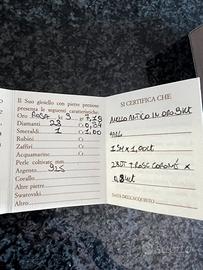 Il Suo gioiello con pietre preziose
presenta le seguenti caratteristiche:
Oro ROSA Kt 9 gr 7,19
Diamanti 28 Ct 0,34
Smeraldi 1 Ct 1,00
Rubini Ct
Zaffiri Ct
Acquamarine Ct
Perle coltivate mm
Argento 925
Corallo
Altre pietre
Swarovski
Altro
SI CERTIFICA CHE
ANELLO ANTICO IN ORO 9Kt
1 SM X 1,00ct
28 DT T ROSE CORONÉ X
0,34ct
DATA DELL'ACQUISTO